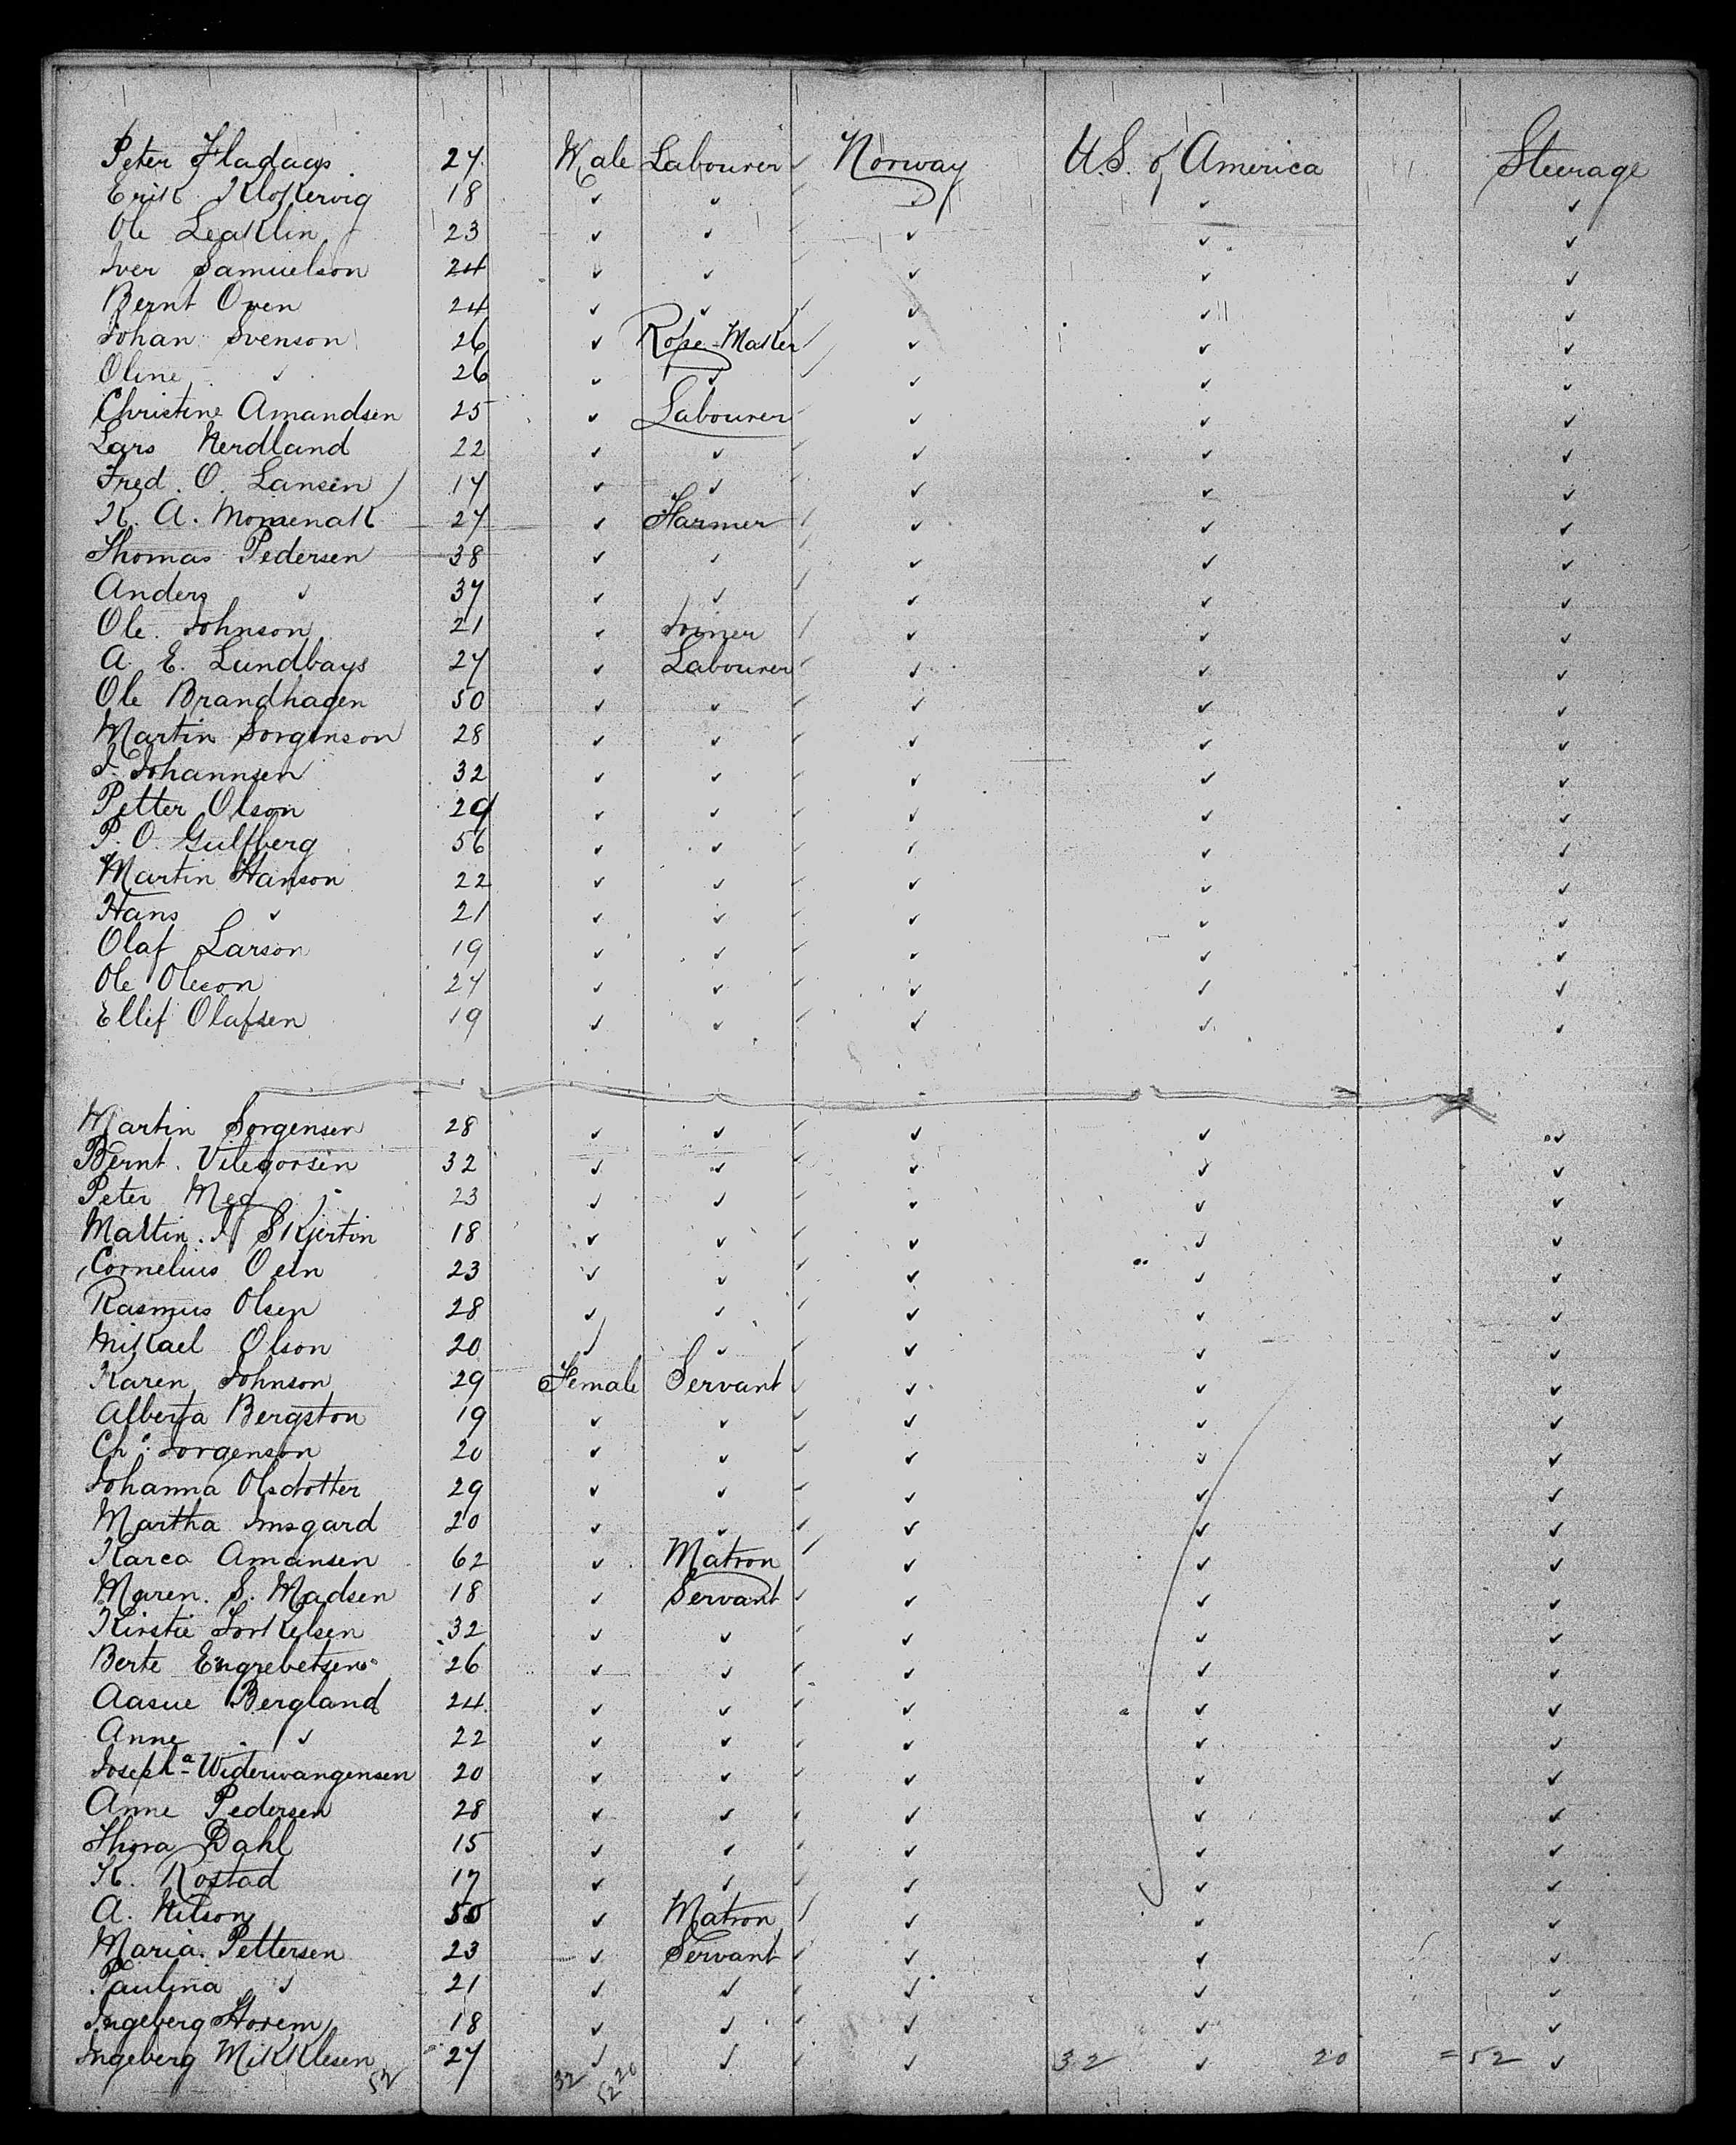 Peter Fladags 27 Male Labourer ✓ Norway U.S. of America Steerage
Erik Klokervig 18 ✓ ✓ ✓ ✓ ✓ ✓
Ole Leaklin 23 ✓ ✓ ✓ ✓ ✓ ✓
Iver Samuelson 24 ✓ ✓ ✓ ✓ ✓ ✓
Bernt Oven 24 ✓ ✓ ✓ ✓ ✓ ✓
Johan Svenson 26 ✓ Rope-Maker ✓ ✓ ✓ ✓
Oline ✓ 26 ✓ ✓ ✓ ✓ ✓ ✓
Christine Amandsen 25 ✓ Labourer ✓ ✓ ✓ ✓
Lars Nerdland 22 ✓ ✓ ✓ ✓ ✓ ✓
Fred. O. Lansen 17 ✓ ✓ ✓ ✓ ✓ ✓
K. A. Momenak 27 ✓ Farmer ✓ ✓ ✓ ✓
Thomas Pedersen 38 ✓ ✓ ✓ ✓ ✓ ✓
Anders ✓ 37 ✓ ✓ ✓ ✓ ✓ ✓
Ole Johnson 21 ✓ Joiner ✓ ✓ ✓ ✓
A. E. Lundbays 27 ✓ Labourer ✓ ✓ ✓ ✓
Ole Brandhagen 50 ✓ ✓ ✓ ✓ ✓ ✓
Martin Sorgenson 28 ✓ ✓ ✓ ✓ ✓ ✓
J. Johannsen 32 ✓ ✓ ✓ ✓ ✓ ✓
Petter Olson 29 ✓ ✓ ✓ ✓ ✓ ✓
P. O. Gulfberg 56 ✓ ✓ ✓ ✓ ✓ ✓
Martin Hanson 22 ✓ ✓ ✓ ✓ ✓ ✓
Hans ✓ 21 ✓ ✓ ✓ ✓ ✓ ✓
Olaf Larson 19 ✓ ✓ ✓ ✓ ✓ ✓
Ole Oleson 27 ✓ ✓ ✓ ✓ ✓ ✓
Ellif Olafsen 19 ✓ ✓ ✓ ✓ ✓ ✓
Martin Sorgensen 28 ✓ ✓ ✓ ✓ ✓ ✓
Bernt Vilegorsen 32 ✓ ✓ ✓ ✓ ✓ ✓
Peter Meg 23 ✓ ✓ ✓ ✓ ✓ ✓
Martin Skjertin 18 ✓ ✓ ✓ ✓ ✓ ✓
Cornelius Oeen 23 ✓ ✓ ✓ ✓ ✓ ✓
Rasmus Olsen 28 ✓ ✓ ✓ ✓ ✓ ✓
Mikael Olson 20 ✓ ✓ ✓ ✓ ✓
Karen Johnson 29 Female Servant ✓ ✓ ✓ ✓
Alberta Bergston 19 ✓ ✓ ✓ ✓ ✓ ✓
Ch. Jorgenson 20 ✓ ✓ ✓ ✓ ✓ ✓
Johanna Olsdotter 29 ✓ ✓ ✓ ✓ ✓ ✓
Martha Imsgard 20 ✓ ✓ ✓ ✓ ✓ ✓
Karea Amansen 62 ✓ Matron ✓ ✓ ✓ ✓
Maren. S. Madsen 18 ✓ Servant ✓ ✓ ✓ ✓
Kirstie Torkelsen 32 ✓ ✓ ✓ ✓ ✓ ✓
Berte Engrebetsen 26 ✓ ✓ ✓ ✓ ✓ ✓
Aasue Bergland 24 ✓ ✓ ✓ ✓ ✓ ✓
Anne ✓ 22 ✓ ✓ ✓ ✓ ✓ ✓
Josepha Widerwangensen 20 ✓ ✓ ✓ ✓ ✓ ✓
Anne Pedersen 28 ✓ ✓ ✓ ✓ ✓ ✓
Thora Dahl 15 ✓ ✓ ✓ ✓ ✓ ✓
K. Rostad 17 ✓ ✓ ✓ ✓ ✓ ✓
A. Nilson 50 ✓ Matron ✓ ✓ ✓ ✓
Maria Pettersen 23 ✓ Servant ✓ ✓ ✓ ✓
Paulina ✓ 21 ✓ ✓ ✓ ✓ ✓ ✓
Ingeberg Storem 18 ✓ ✓ ✓ ✓ ✓ ✓
Ingeberg Mikklesen 27 ✓ ✓ ✓ ✓ 32 ✓ 20 =52 ✓
52 32 20
52